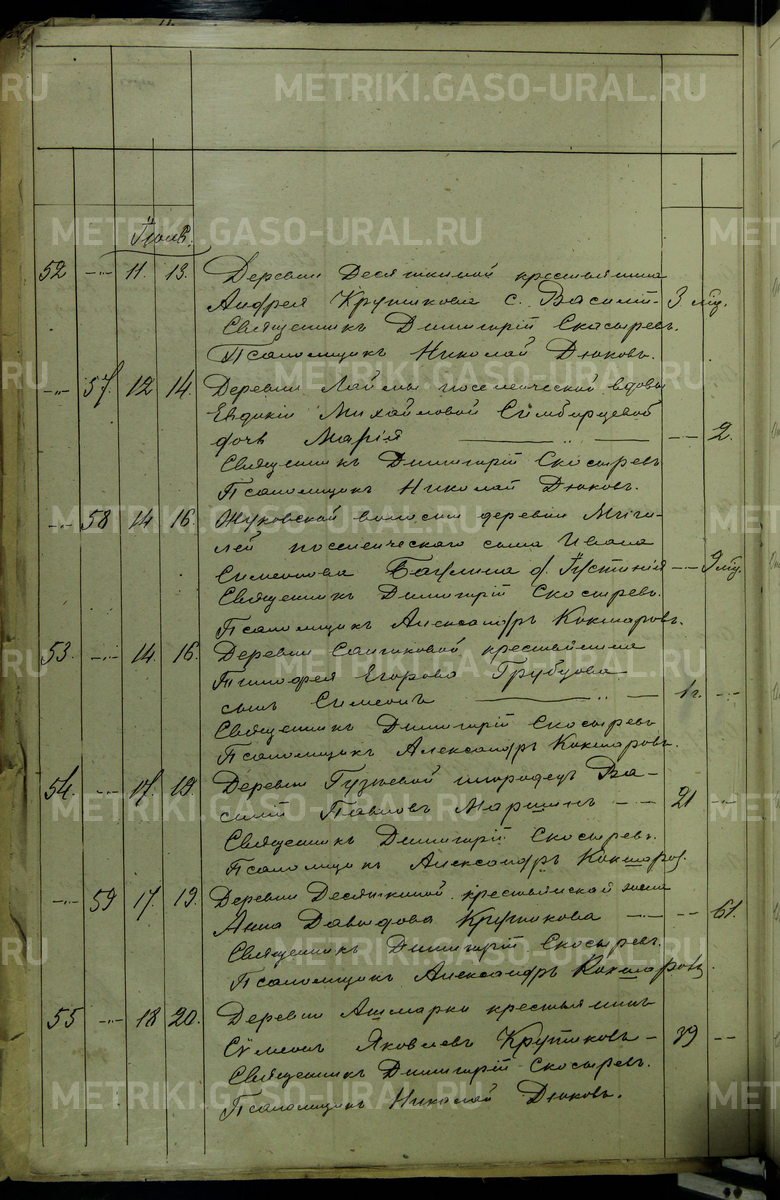 METRIKI.GASO-URAL.RU
Іюнь.
52 — 11. 13. Деревни Десяткиной крестьянина
Андрея Крутикова с. Василій - 3 мц.
Священникъ Димитрій Скосыревъ.
Псаломщикъ Николай Дюковъ.
— 57. 12 14. Деревни поселенческой вдовы
Евдокіи Михайловой Симбирцевой
дочь Марія — — 2.
Священникъ Димитрій Скосыревъ
Псаломщикъ Николай Дюковъ.
— 58 14 16. Жуковской волости деревни
поселенческаго сына Ивана
Симеонова д. — 9 мц.
Священникъ Димитрій Скосыревъ.
Псаломщикъ Александръ Кокшаровъ.
53. — 14. 16. Деревни крестьянина
Тимофея Егорова Грубцова
сынъ Симеонъ — 1 г. —
Священникъ Димитрій Скосыревъ
Псаломщикъ Александръ Кокшаровъ.
54. — 17. 19. Деревни Гузѣевой инородецъ Ва-
силій Павловъ — — 21 —
Священникъ Димитрій Скосыревъ.
Псаломщикъ Александръ Кокшаров.
— 59 17. 19. Деревни Десяткиной крестьянская жена
Анна Давыдова Крутикова — — 61.
Священникъ Димитрій Скосыревъ.
Псаломщикъ Александръ Кокшаровъ.
55 — 18 20. Деревни Ашмарки крестьянинъ
Сѵмеонъ Яковлевъ Крутиковъ — 39 —
Священникъ Димитрій Скосыревъ.
Псаломщикъ Николай Дюковъ.